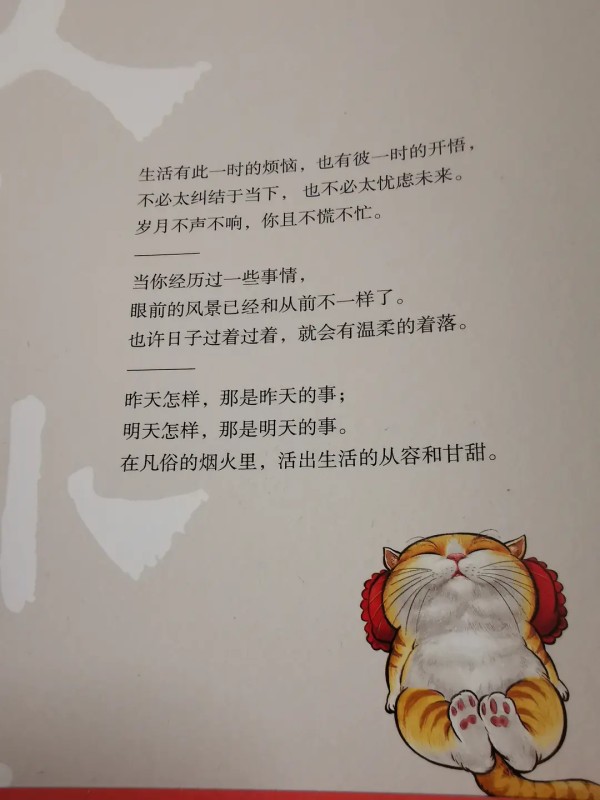 生活有此一时的烦恼，也有彼一时的开悟，
不必太纠结于当下，也不必太忧虑未来。
岁月不声不响，你且不慌不忙。
当你经历过一些事情，
眼前的风景已经和从前不一样了。
也许日子过着过着，就会有温柔的着落。
昨天怎样，那是昨天的事；
明天怎样，那是明天的事。
在凡俗的烟火里，活出生活的从容和甘甜。